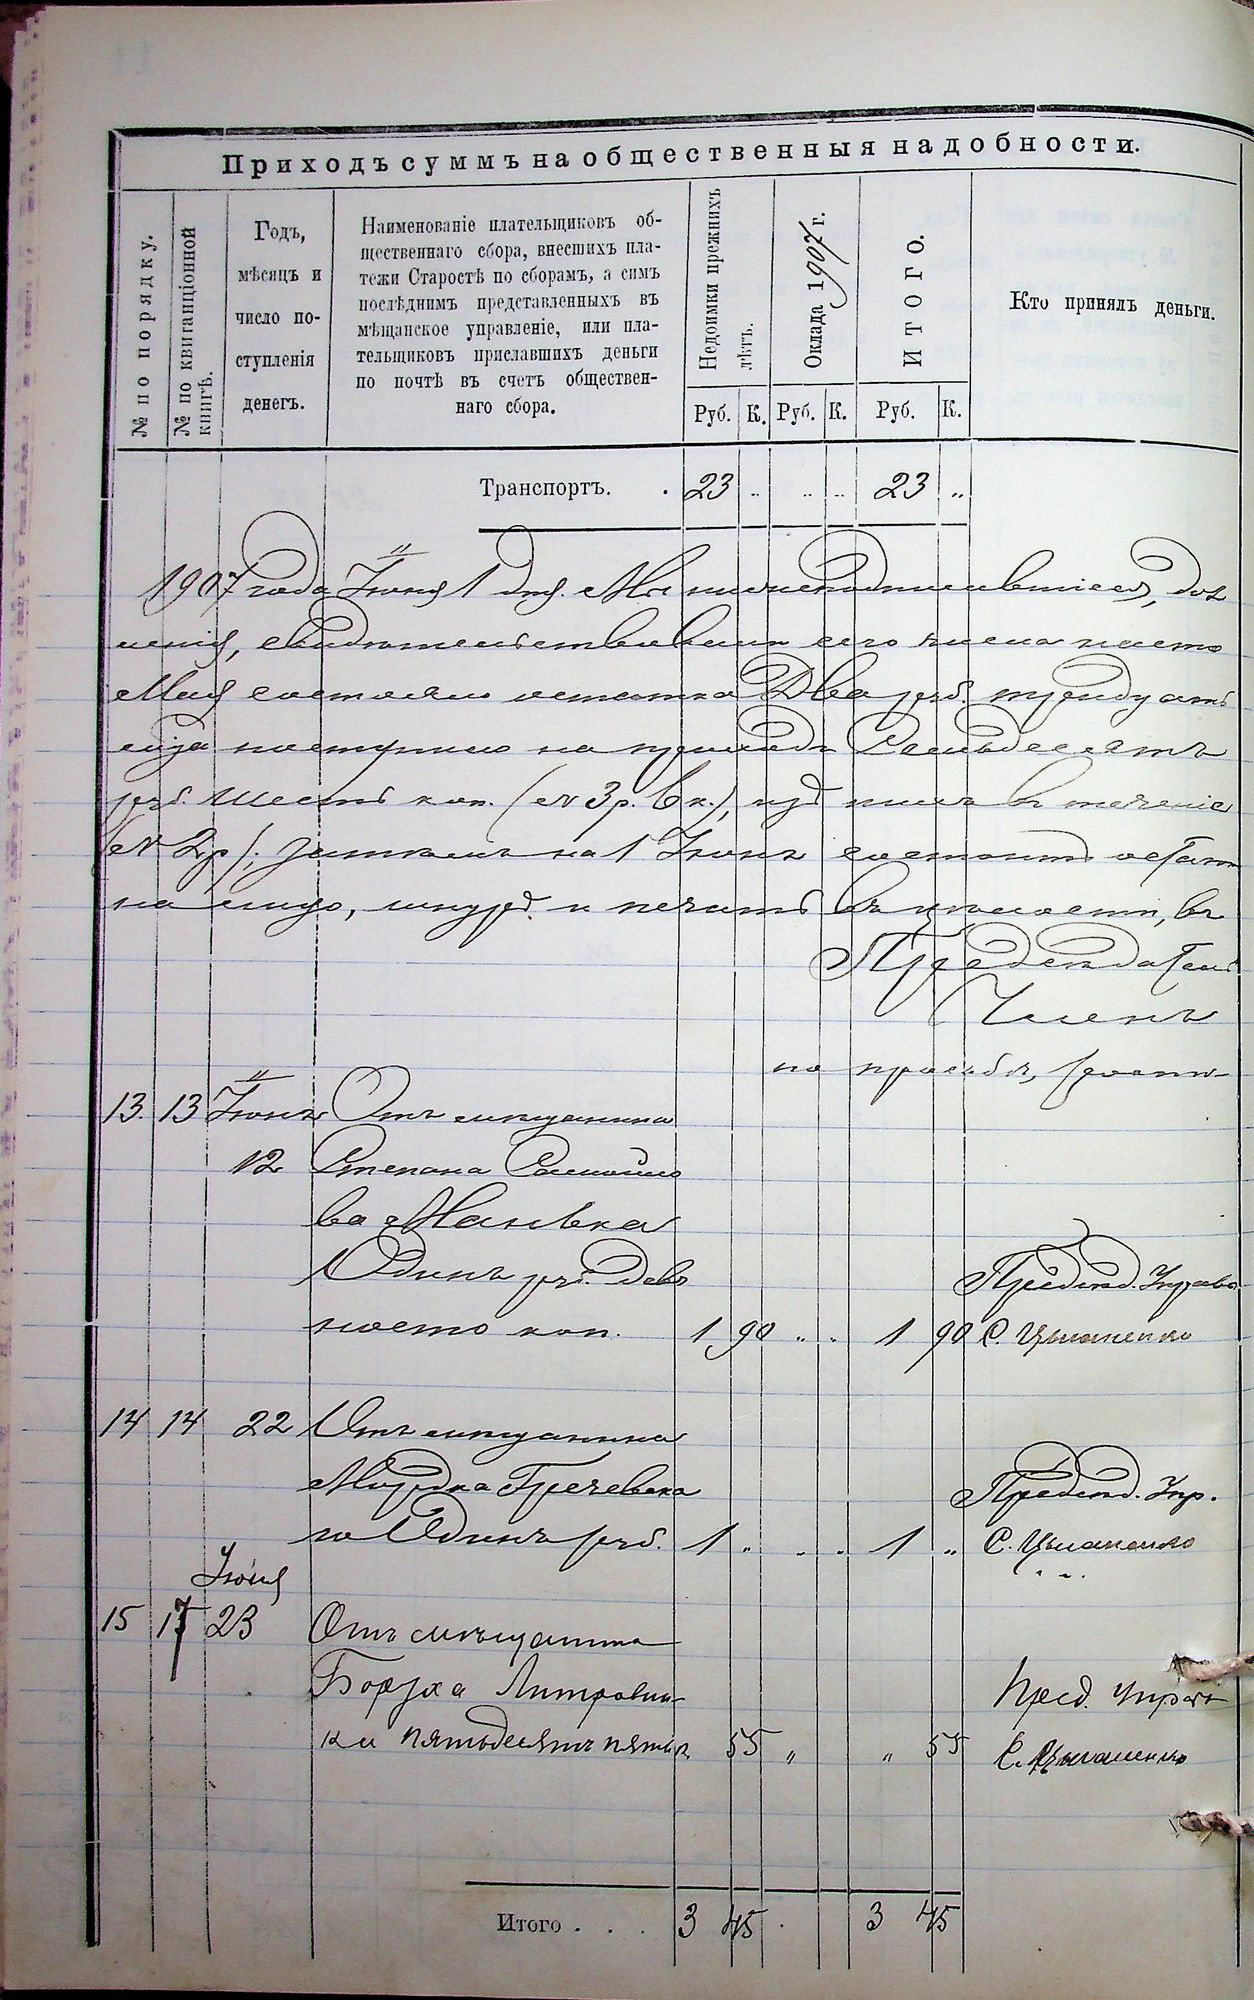 Приходъ суммъ на общественныя надобности.
№ по порядку.
№ по квитанціонной книгѣ.
Годъ,
мѣсяцъ и
число по-
ступленія
денегъ.
Наименованіе плательщиковъ об-
щественнаго сбора, внесшихъ пла-
тежи Старостѣ по сборамъ, а симъ
послѣднимъ представленныхъ въ
мѣщанское управленіе, или пла-
тельщиковъ приславшихъ деньги
по почтѣ въ счетъ обществен-
наго сбора.
Недоимки прежнихъ лѣтъ.
Оклада 1907 г.
ИТОГО.
Кто принялъ деньги.
Руб. К. Руб. К. Руб. К.
Транспортъ. . 23 „ „ „ 23 „
1907 года Іюня 1 дня. Мы нижеподписавшіеся, дол
ленія, свидѣтельствовали сего числа настоя
Мая состояло остатка Два руб. тридцать
сяца поступило на приходъ Семьдесятъ
руб. шесть коп. ( 3 р. 6 к.), изъ нихъ въ теченіе
2 р.), затѣмъ на 1 Іюня состоитъ остат
на лицо, шнуръ и печать въ цѣлости, въ
Предсѣдатель
Членъ
по просьбѣ,
13. 13 Іюня Отъ мѣщанина
12 Степана Самойло
ва Манька
Одинъ руб. девя
носто коп. 1 90 „ „ 1 90
Предсѣд. Управ
С. Цыганенко
14 14 22 Отъ мѣщанина
Мордка Гречевска
го Одинъ руб. 1 „ „ „ 1 „
Предсѣд. Упр.
С. Цыганенко
Іюня
15 15 23 Отъ мѣщанина
Боруха Литровни
ки пятьдесятъ пять к 55 „ „ 55
Пред. Управ
С. Цыганенко
Итого . . . 3 45 . 3 45